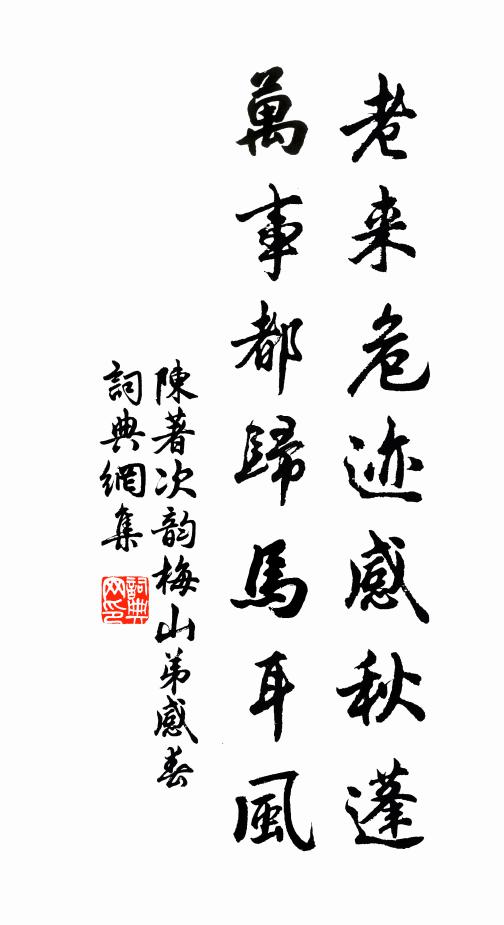 老来危迹感秋蓬
萬事都歸馬耳風
陳著次韵梅山弟感春
詞典網集
詞典網印